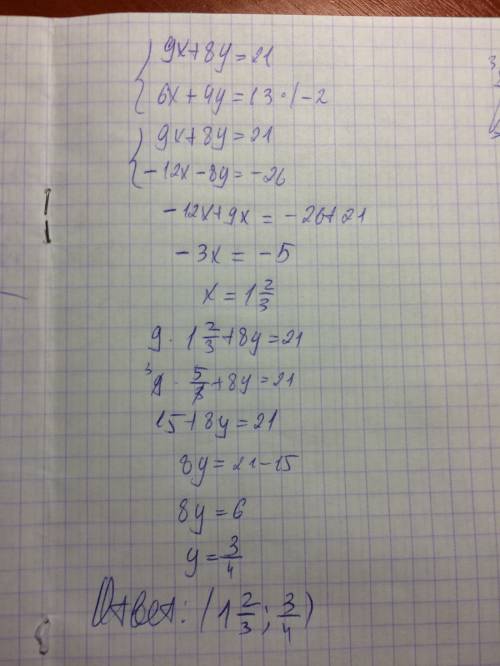 9x+8y=21
6x+4y=13·|-2
9x+8y=21
-12x-8y=-26
-12x+9x=-26+21
-3x=-5
x=1 2/3
9·1 2/3+8y=21
³9·5/3+8y=21
15+8y=21
8y=21-15
8y=6
y=3/4
Ответ: (1 2/3; 3/4)